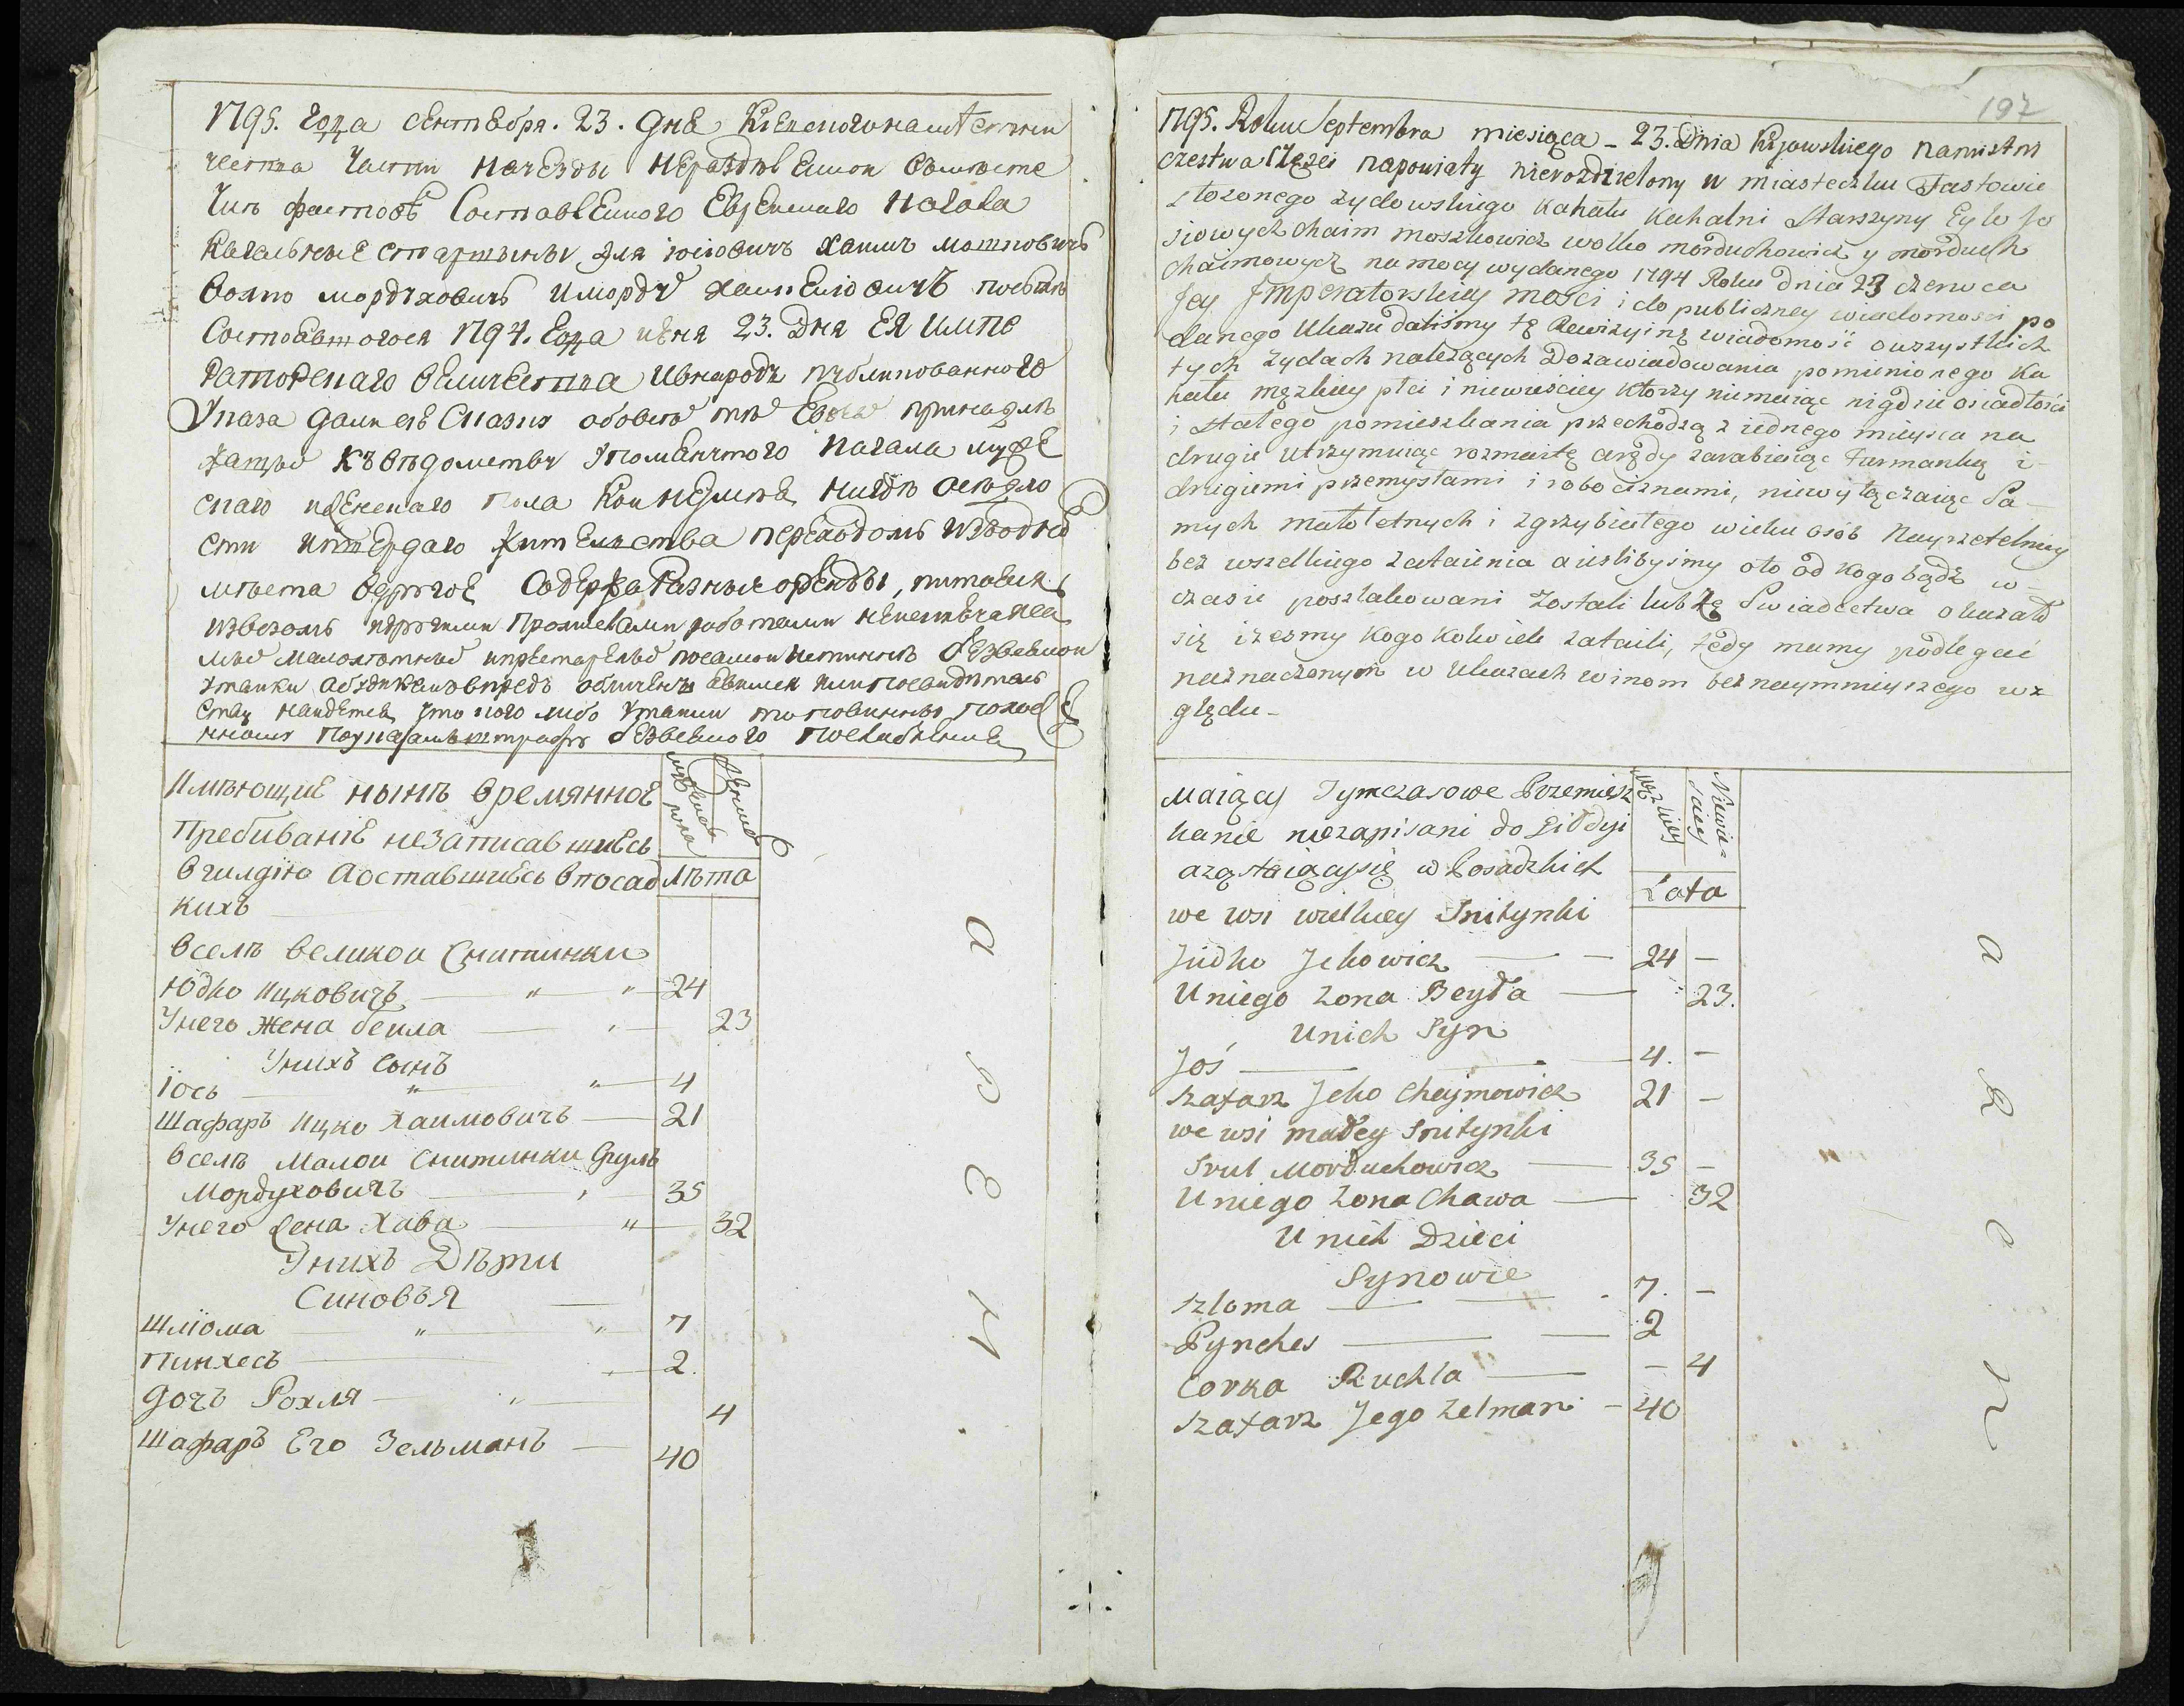 1795. года сентебря. 23. дня Киевского наместни
чества части науезды неразделенои вместе
чик фастовѣ Составленного Еврейскаго кагала
Кагальные старшыны, Эля Іосіовичъ Хаимъ мошковичъ
Волко мордуховичъ и мордух хаимовичъ посилѣ
Состоявшогося 1794. года июня 23. дня ЕЯ ИМПЕ
раторскаго величества ивнародъ публикованного
Указа дали сию сказку обовсѣхъ евреяхъ принадле
жащихъ къ вѣдомству упомянутого кагала мужс
скаго и женскаго пола кои неимѣя нигдѣ осѣдло
сти и твердаго жителства переходомъ изодного
мѣста вдругое Содержа разные оренды, питаются
извозомъ и другими промислами работами неисключая са
михъ малолѣтныхъ и престарелыхъ посамои истиннѣ безвсякои
утаики
что кого либо утаили то повинны
безвсякого
Имѣющие нынѣ времянное
Пребиваніе незаписавшиесь
вгилдію аоставшиесь впосад
кихъ
мужеска пола
женска
лѣта
вселѣ великои Снитинки
Юдко Ицковичъ — 24
Унего жена беила — 23
Унихъ сынъ
Іось — 4
Шафаръ Ицко Хаимовичъ — 21
вселѣ Малои снитинки Сруль
Мордуховичъ — 35
Унего жена Хава — 32
Унихъ Дѣти
Синовья
Шліома — 7
Пинхесъ — 2.
Дочъ Рохля — 4
Шафаръ Его Зельманъ — 40
197
1795. Roku Septembra miesiąca - 23. Dnia Kijowskiego namistni
czestwa Częsci napowiaty nierozdzielony w miasteczku Fastowie
złozonego zydowskiego Kahału Kahalni Starszyny Eylo Jo
siowycz chaim moszkowicz wolko morduchowicz y morduch
chaimowycz na mocy wydanego 1794 Roku dnia 23 czerwca
Jey Jmperatorskiey mości i do publiczney wiadomości po
danego Ukazu daliśmy tę Rewizyiną wiadomość o wszystkich
tych zydach należących do zawiadowania pomienionego Ka
hału męzkiey płci i niewieściey ktorzy niemaiąc nigdzie osiadłości
i stałego pomieszkania przechodzą z iednego mieysca na
drugie utrzymuiąc rozmaitę arędy zarabiaiąc Furmanką i
drugiemi przemysłami i robociznami, niewyłączaiąc Sa-
mych małoletnych i zgrzybiałego wieku osób Nayrzetelniey
bez wszelkiego zataienia a ieslibysmy oto od kogo bądź w-
czasie poszlakowani zostali lub zę Swiadectwa okazało
się izesmy kogo kolwiek zataili, tedy mamy podlegać
naznaczonym w Ukazach winom beznaymnieyszego wz
ględu-
Maiący Tymczasowe Przemiesz
kanie niezapisani do Gildyi
azostaiącysię w Posadzkich
Męzkiey
Niewieściey
Lata
we wsi wielkiey Snitynki
Judko Jckowicz — 24 —
Uniego zona Beyła — 23.
Unich Syn
Joś — 4. —
Szafarz Jcko Chaymowicz 21 —
we wsi małey Snitynki
Srul Morduchowicz — 35 —
Uniego zona Chawa — 32
Unich Dzieci
Synowie
Szloma — 7. —
Pynches — 2
Corka Ruchla — 4
Szafarz Jego Zelman — 40